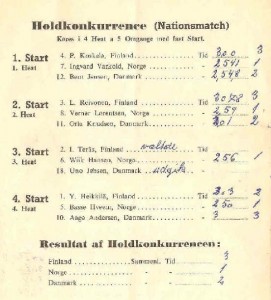 Holdkonkurrence (Nationsmatch)
Køres i 4 Heat a 5 Omgange med fast Start.
1. Start 4. P. Koskela, Finland Tid 3.0.0 3
1. Heat 7. Ingvard Norge 2.54.1 1
12. Bent Jensen, Danmark 2.54.8 2
2. Start 3. L. Reivonen, Finland Tid
2. Heat 8. Verner Lorentzen, Norge 2.59 1
11. Orla Knudsen, Danmark 3.0.1 2
3. Start 2. I. Terks, Finland væltede
3. Heat 6. Wilh. Hansen, Norge 256 1
10. Uno Jensen, Danmark udgik
4. Start 1. Y. Heikkilä, Finland Tid 3.0.3 2
4. Heat 5. Basse Hveem, Norge 250 1
10. Aage Andersen, Danmark 3 3
Resultat af Holdkonkurrencen:
Finland Summesl. Tid 3
Norge 1
Danmark 2